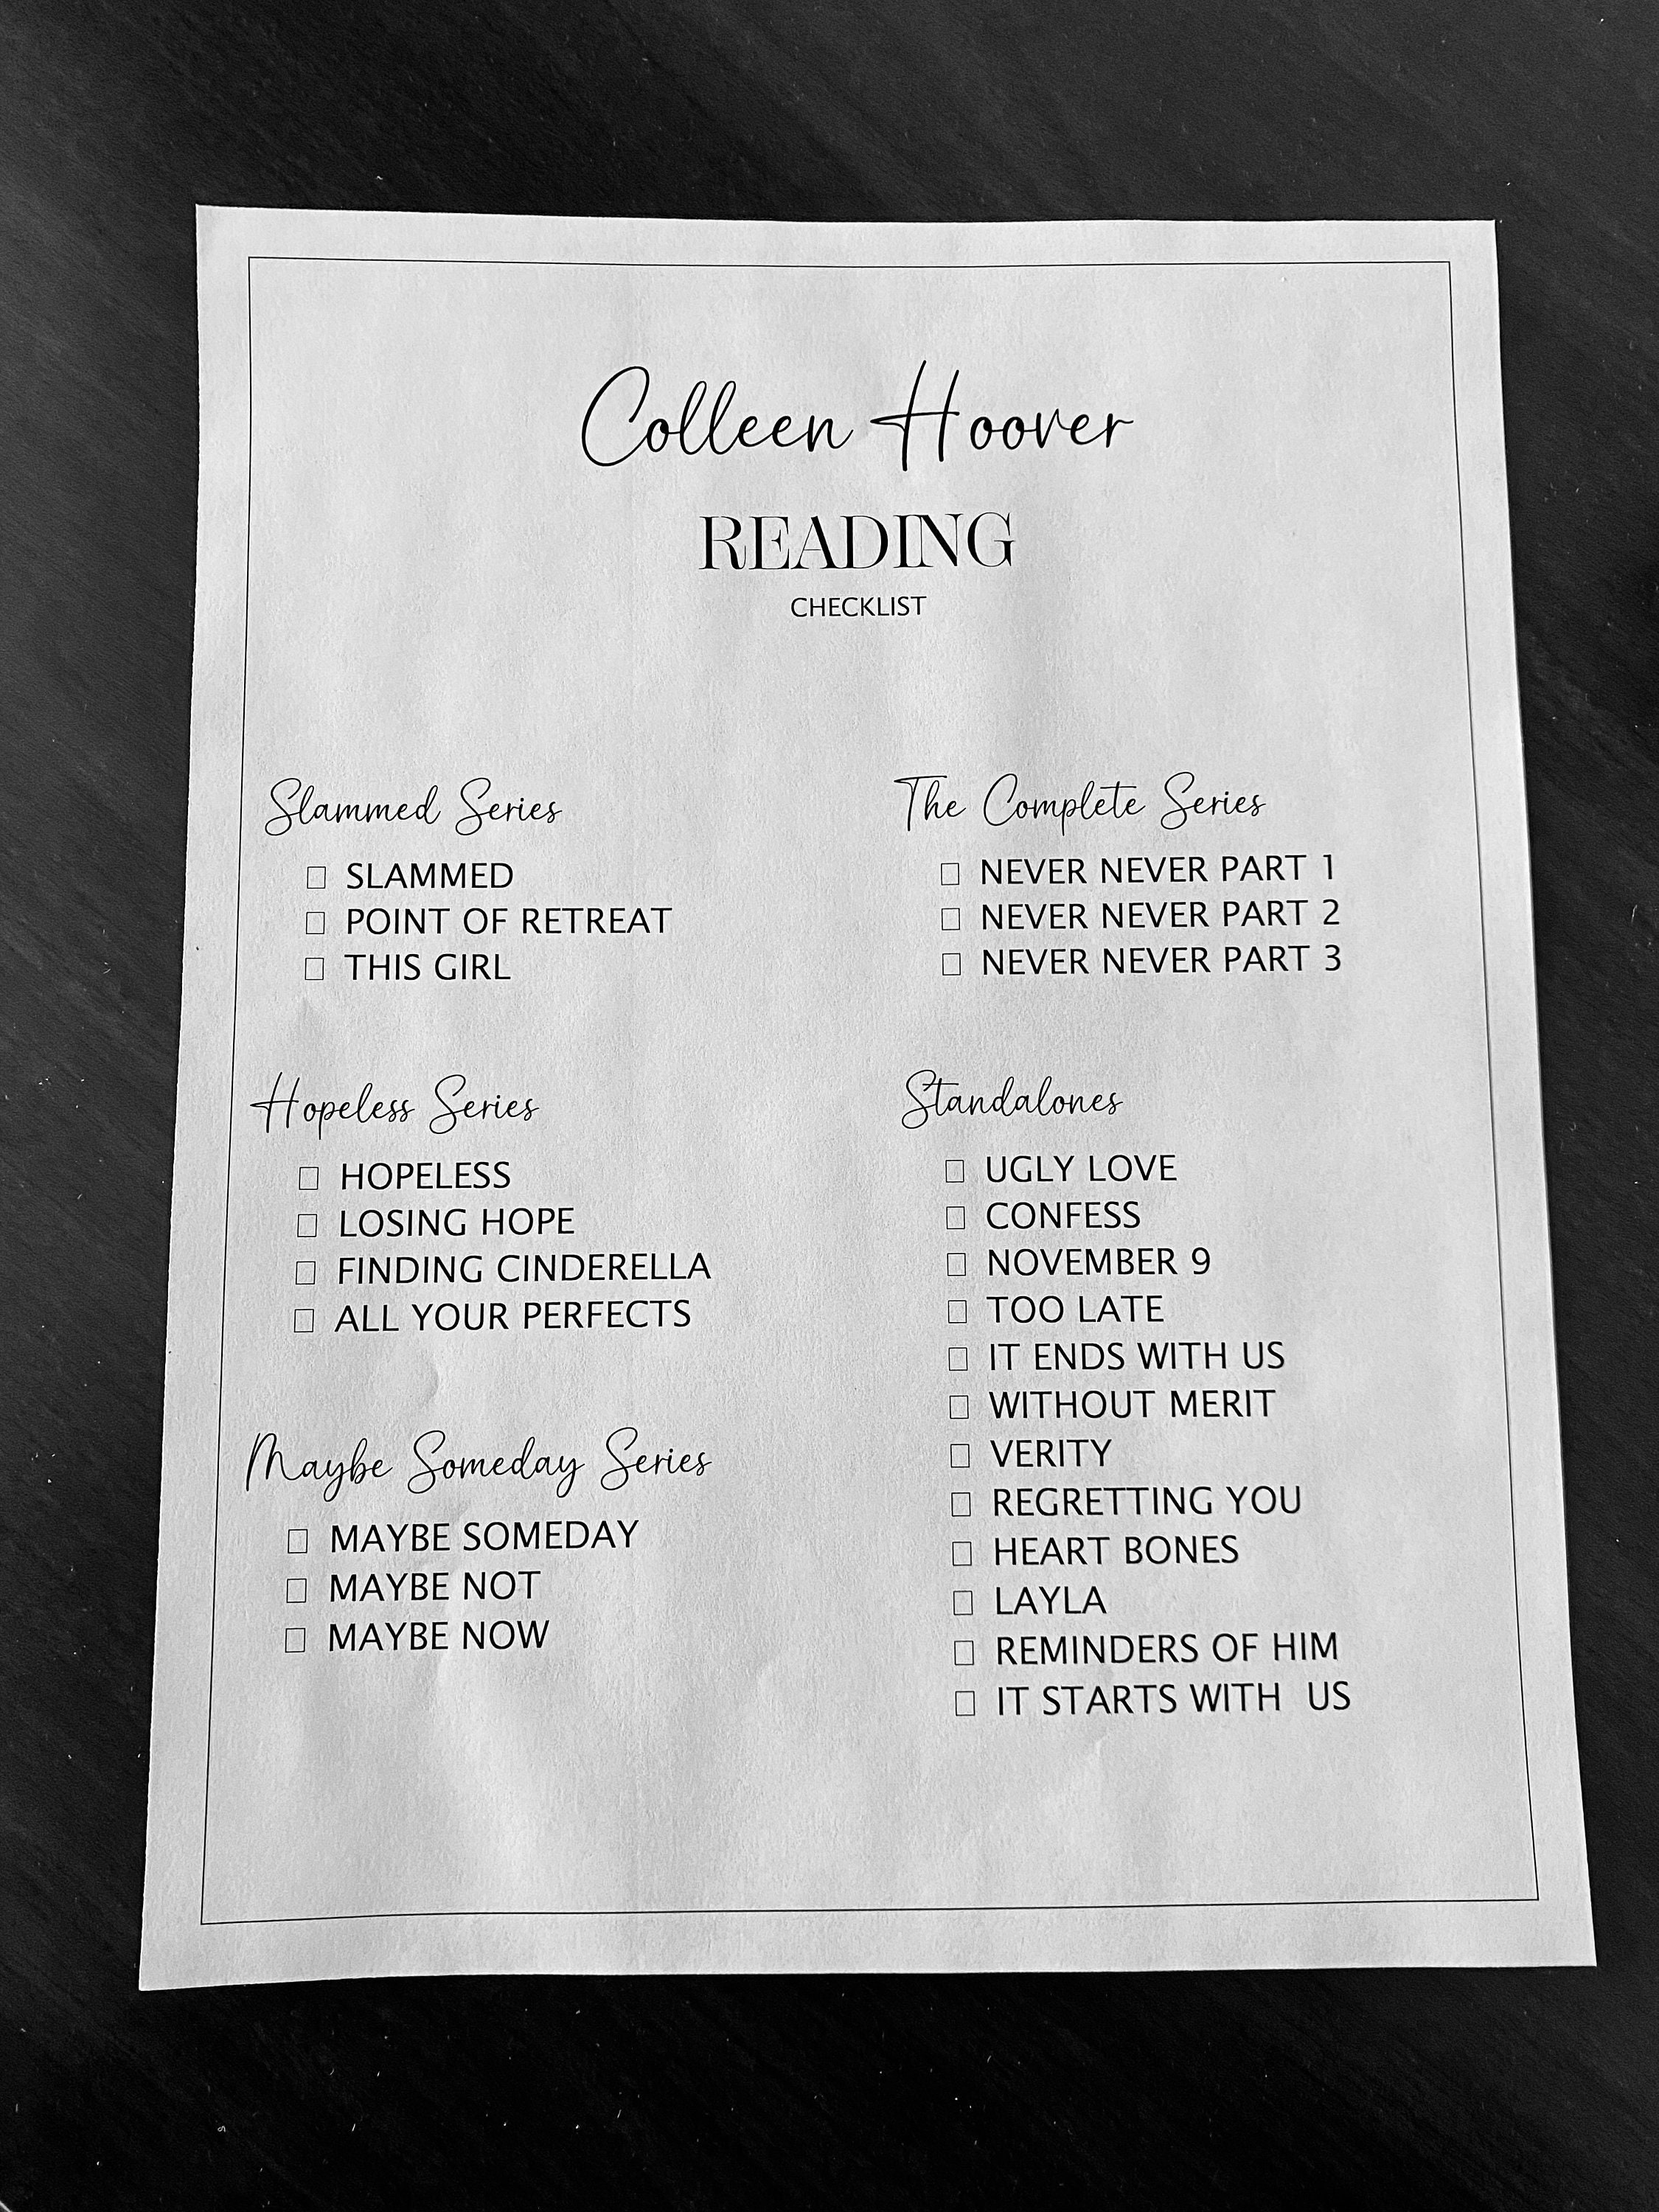 Colleen Hoover
READING
CHECKLIST
Slammed Series
SLAMMED
POINT OF RETREAT
THIS GIRL
Hopeless Series
HOPELESS
LOSING HOPE
FINDING CINDERELLA
ALL YOUR PERFECTS
Maybe Someday Series
MAYBE SOMEDAY
MAYBE NOT
MAYBE NOW
The Complete Series
NEVER NEVER PART 1
NEVER NEVER PART 2
NEVER NEVER PART 3
Standalones
UGLY LOVE
CONFESS
NOVEMBER 9
TOO LATE
IT ENDS WITH US
WITHOUT MERIT
VERITY
REGRETTING YOU
HEART BONES
LAYLA
REMINDERS OF HIM
IT STARTS WITH  US